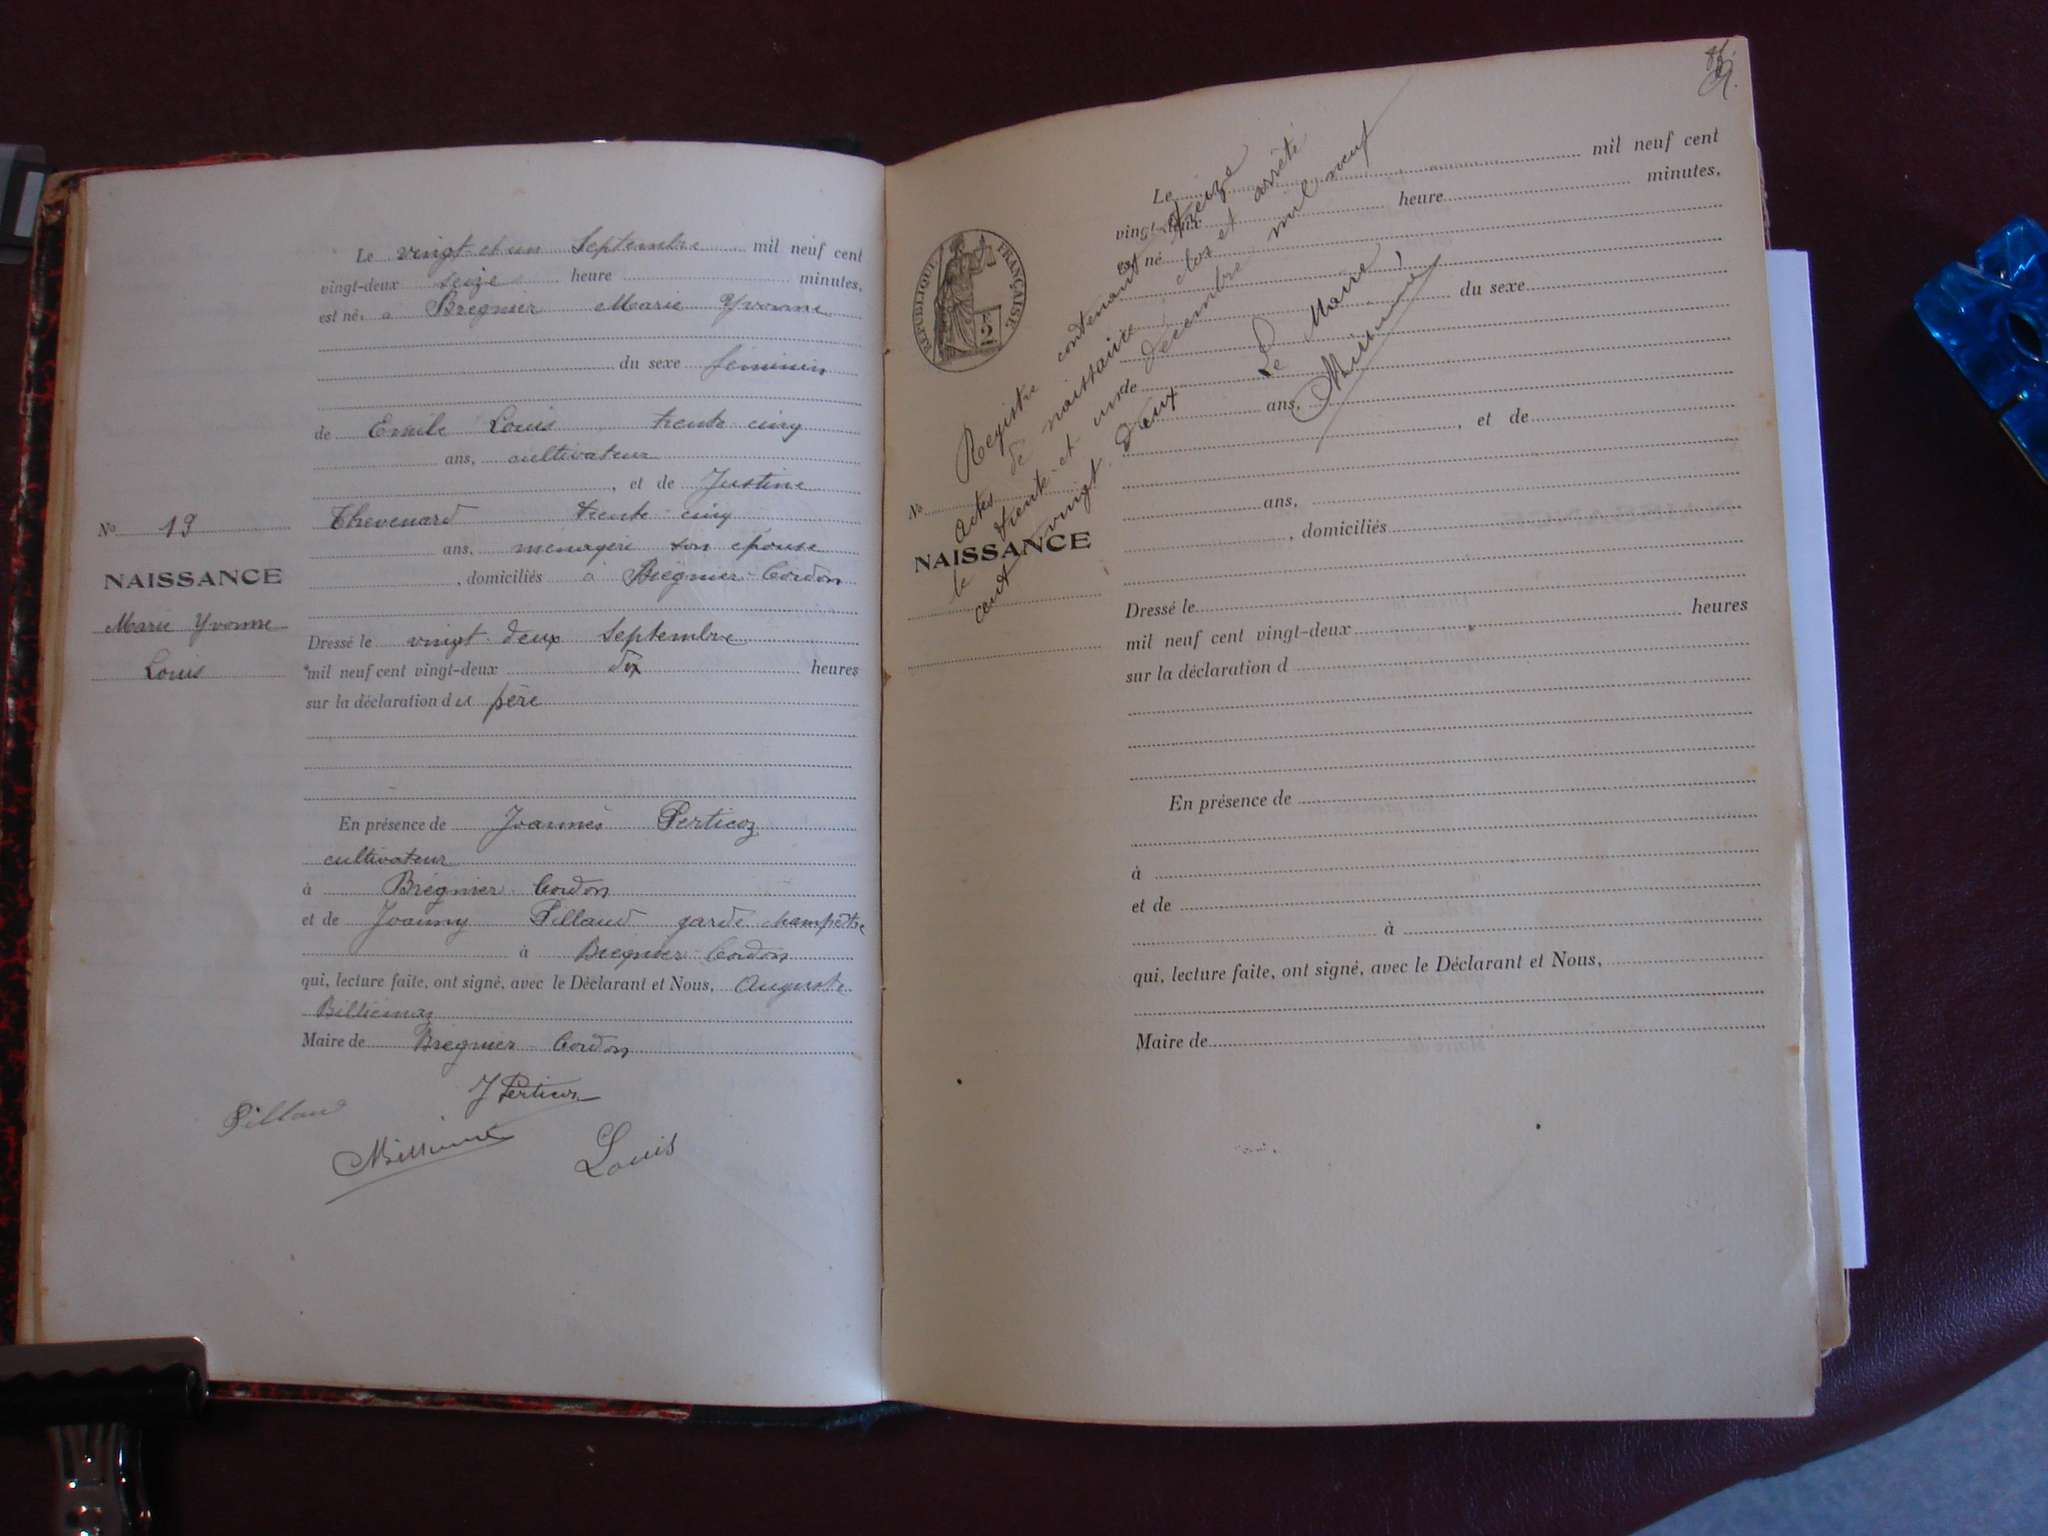 Le vingt et un Septembre mil neuf cent
vingt-deux seize heure minutes,
est né, a Bregnier Marie Yvonne
du sexe féminin
de Emile Louis trente cinq
ans, cultivateur
, et de Justine
Thevenard trente cinq
ans, menagère son épouse
, domiciliés à Brégnier-Cordon
Dressé le vingt deux Septembre
mil neuf cent vingt-deux dix heures
sur la déclaration du père
En présence de Joannès Perticoz
cultivateur
à Brégnier Cordon
et de Joanny Pillaud garde champêtre
à Bregnier-Cordon
qui, lecture faite, ont signé, avec le Déclarant et Nous, Auguste
Maire de Bregnier-Cordon
Pillaud
J Perticoz
Louis
No 19
NAISSANCE
Marie Yvonne
Louis
RÉPUBLIQUE FRANÇAISE
2
Le mil neuf cent
vingt-deux heure minutes,
est né
du sexe
de
ans,
, et de
ans,
, domiciliés
Dressé le
mil neuf cent vingt-deux heures
sur la déclaration d
En présence de
à
et de
à
qui, lecture faite, ont signé, avec le Déclarant et Nous,
Maire de
No
NAISSANCE
Registre contenant treize
actes de naissance, clos et arrêté
le trente et un décembre mil neuf
cent vingt deux
Le Maire,